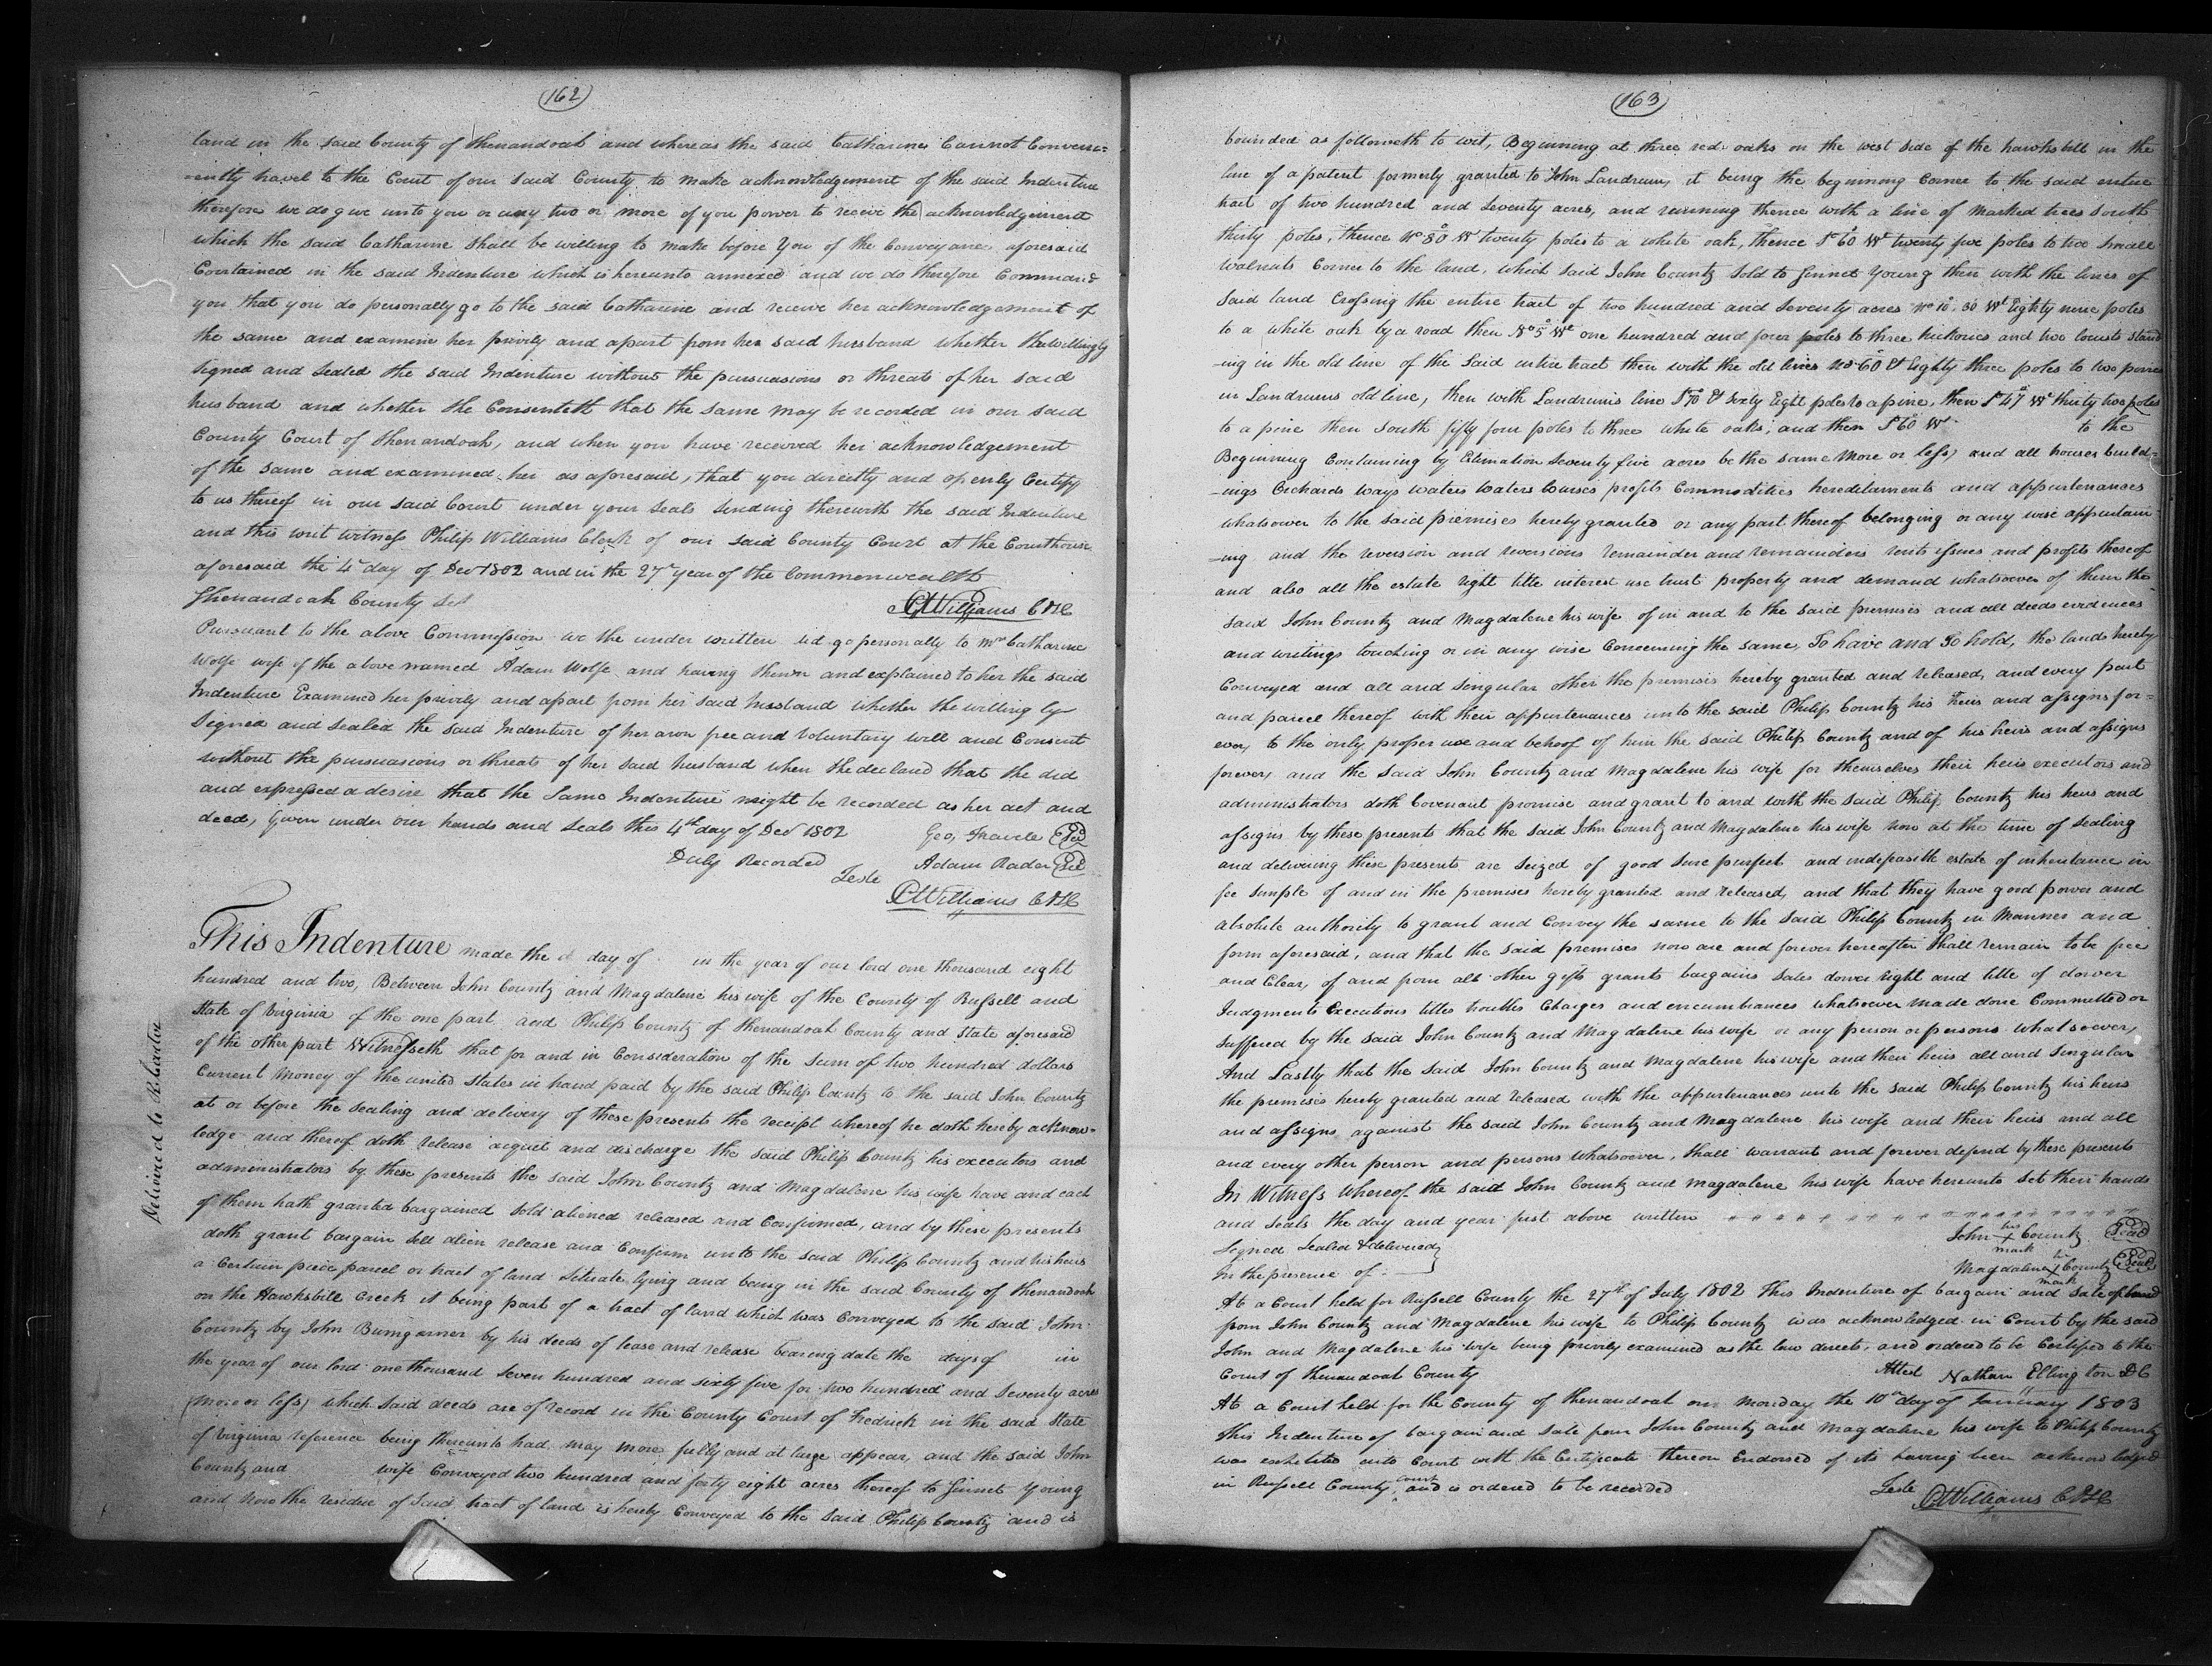 162
land in the said County of Shenandoah and whereas the said Catharine Cannot Conveni=
-ently travel to the Court of our said County to make acknowledgement of the said Indenture
therefore we do give unto you or any two or more of you power to receive the acknowledgement
which the said Catharine shall be willing to make before You of the Conveyance aforesaid
Contained in the said Indenture which is hereunto annexed and we do therefore Command
you that you do personally go to the said Catharine and receive her acknowledgement of
the same and examine her privily and apart from her said husband whether she willingly
signed and sealed the said Indenture without the pursuasions or threats of her said
husband and whether she Consenteth that the same may be recorded in our said
County Court of Shenandoah, and when you have received her acknowledgement
of the same and examined her as aforesaid, that you directly and openly Certify
to us thereof in our said Court under your seals sending therewith the said Indenture
and this writ witness Philip Williams Clerk of our said County Court at the Courthouse
aforesaid the 4th day of Decr 1802 and in the 27th year of the Commonwealth
Shenandoah County Sct
P Williams CSC
Pursuant to the above Commission we the under written did go personally to Mrs Catharine
Wolfe wife of the above named Adam Wolfe and having shewn and explained to her the said
Indenture Examined her privily and apart from her said husband whether she willingly
signed and sealed the said Indenture of her own free and voluntary will and Consent
without the pursuasions or threats of her said husband when she declared that she did
and expressed a desire that the same Indenture might be recorded as her act and
deed, Given under our hands and seals this 4th day of Decr 1802
Geo, Seal
Duly Recorded Adam Rader Seal
Teste
P Williams CSC
This Indenture made the day of in the year of our lord one thousand eight
hundred and two, Between John Countz and Magdalene his wife of the County of Russell and
State of Virginia of the one part and Philip Countz of Shenandoah County and State aforesaid
of the other part Witnesseth that for and in Consideration of the Sum of two hundred dollars
Current Money of the united States in hand paid by the said Philip Countz to the said John Countz
at or before the sealing and delivery of these presents the receipt whereof he doth hereby acknow=
ledge and thereof doth release acquit and discharge the said Philip Countz his executors and
administrators by these presents the said John Countz and Magdalene his wife have and each
of them hath granted bargained sold aliened released and Confirmed, and by these presents
doth grant bargain sell alien release and Confirm unto the said Philip Countz and his heirs
a Certain piece parcel or tract of land situate lying and being in the said County of Shenandoah
on the Hawksbill Creek it being part of a tract of land which was Conveyed to the said John
Countz by John Bumgarner by his deeds of lease and release bearing date the days of in
the year of our lord one thousand seven hundred and sixty five for two hundred and seventy acres
(more or less) which said deeds are of record in the County Court of Fredrick in the said State
of Virginia reference being thereunto had may more fully and at large appear, and the said John
Countz and wife Conveyed two hundred and forty eight acres thereof to Sinnet Young
and Now the residue of said tract of land is hereby Conveyed to the said Philip Countz and is
Delivered to
163
bounded as followeth to wit, Beginning at three red oaks on the west side of the hawksbill in the
line of a patent formerly granted to John Landrum, it being the beginning Corner to the said entire
tract of two hundred and Seventy acres, and running thence with a line of Marked trees South
thirty poles, thence No 80 Wt twenty poles to a white oak, thence So 60 Wt twenty five poles to two Small
walnuts Corner to the land, which said John Countz sold to Sinnet Young then with the lines of
said land Crossing the entire tract of two hundred and seventy acres No 10. 30 Wt Eighty nine poles
to a white oak by a road then No 5 Wt one hundred and four poles to three hickories and two locusts stand
-ing in the old line of the said entire tract then with the old lines No 60 E Eighty three poles to two pines
in Landrums old line, then with Landrums line So 70 E sixty Eight poles to a pine, then So 47 Wt thirty two poles
to a pine then South fifty four poles to three white oaks, and then So 60 W to the
Beginning Containing by Estimation Seventy five acres be the same More or less, and all houses build=
-ings Orchards ways waters waters Courses profits Commodities hereditaments and appurtenances
whatsoever to the said premises hereby granted or any part thereof belonging or any wise appertain
-ing and the reversion and reversions remainder and remainders rents issues and profits thereof
and also all the estate right title interest use trust property and demand whatsoever of them the
said John Countz and Magdalene his wife of in and to the said premises and all deeds evidences
and writings touching or in any wise Concerning the same, To have and To hold, the lands hereby
Conveyed and all and Singular other the premises hereby granted and released, and every part
and parcel thereof with their appurtenances unto the said Philip Countz his heirs and assigns for=
ever, to the only proper use and behoof of him the said Philip Countz and of his heirs and assigns
forever, and the said John Countz and Magdalene his wife for themselves their heirs executors and
administrators doth Covenant promise and grant to and with the said Philip Countz his heirs and
assigns by these presents that the said John Countz and Magdalene his wife now at the time of sealing
and delivering these presents are seized of good sure purfect and indefasible estate of inheritance in
fee simple of and in the premises hereby granted and released, and that they have good power and
absolute authority to grant and Convey the same to the said Philip Countz in Manner and
form aforesaid, and that the said premises now are and forever hereafter shall remain to be free
and Clear, of and from all other gifts grants bargains sales dower right and title of dower
Judgments Executions titles troubles Charges and encumbrances whatsoever made done Committed or
suffered by the said John Countz and Magdalene his wife or any person or persons whatsoever,
And Lastly that the said John Countz and Magdalene his wife and their heirs all and Singular
the premises hereby granted and released with the appurtenances unto the said Philip Countz his heirs
and assigns against the said John Countz and Magdalene his wife and their heirs and all
and every other person and persons whatsoever, shall warrant and forever defend by these presents
In Witness whereof the said John Countz and Magdalene his wife have hereunto set their hands
and seals the day and year first above written
Signed Sealed & delivered
John his X mark Countz Seal
In the presence of
Magdalene X mark Countz Seal
At a Court held for Russell County the 27th of July 1802 This Indenture of bargain and Sale of land
from John Countz and Magdalene his wife to Philip Countz was acknowledged in Court by the said
John and Magdalene his wife being privily examined as the law directs, and ordered to be Certifyed to the
Court of Shenandoah County
Attest Nathan Ellington DC
At a Court held for the County of Shenandoah on Monday the 10th day of January 1803
This Indenture of bargain and Sale from John Countz and Magdalene his wife to Philip Countz
was exhibited into Court with the Certificate thereon Endorsed of its having been acknowledged
in Russell County court and is ordered to be recorded
Teste P Williams CSC